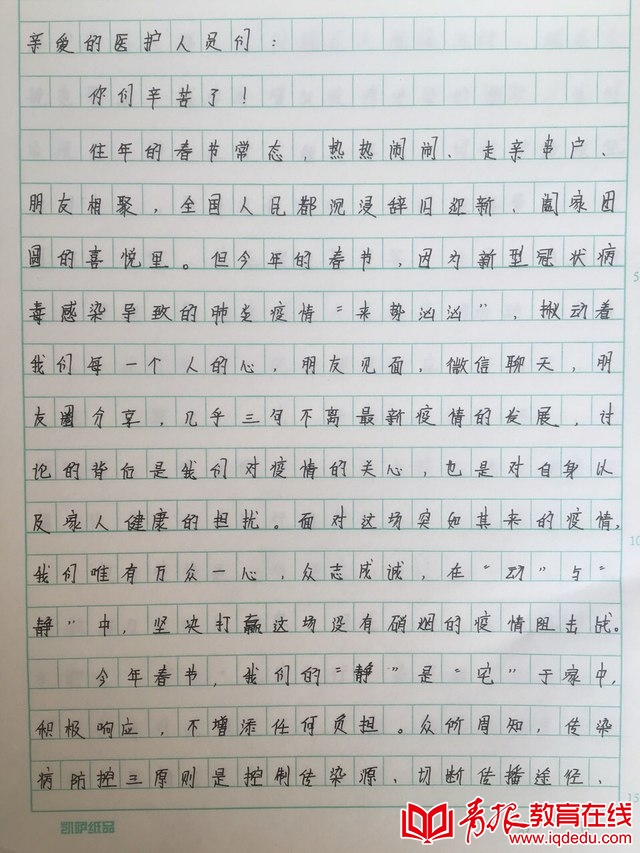 亲爱的医护人员们:
你们辛苦了!
往年的春节常态,热热闹闹、走亲串户、
朋友相聚,全国人民都沉浸辞旧迎新、阖家团
圆的喜悦里。但今年的春节,因为新型冠状病
毒感染导致的肺炎疫情“来势汹汹”,揪动着
我们每一个人的心,朋友见面,微信聊天,朋
友圈分享,几乎三句不离最新疫情的发展,讨
论的背后是我们对疫情的关心,也是对自身以
及家人健康的担扰。面对这场突如其来的疫情,
我们唯有万众一心,众志成诚,在“动”与“
静”中,坚决打赢这场没有硝烟的疫情阻击战。
今年春节,我们的“静”是“宅”于家中,
积极响应,不增添任何负担。众所周知,传染
病防控三原则是控制传染源、切断传播途径、
5
10
15
凯萨纸品
青报教育在线
www.iqdedu.com